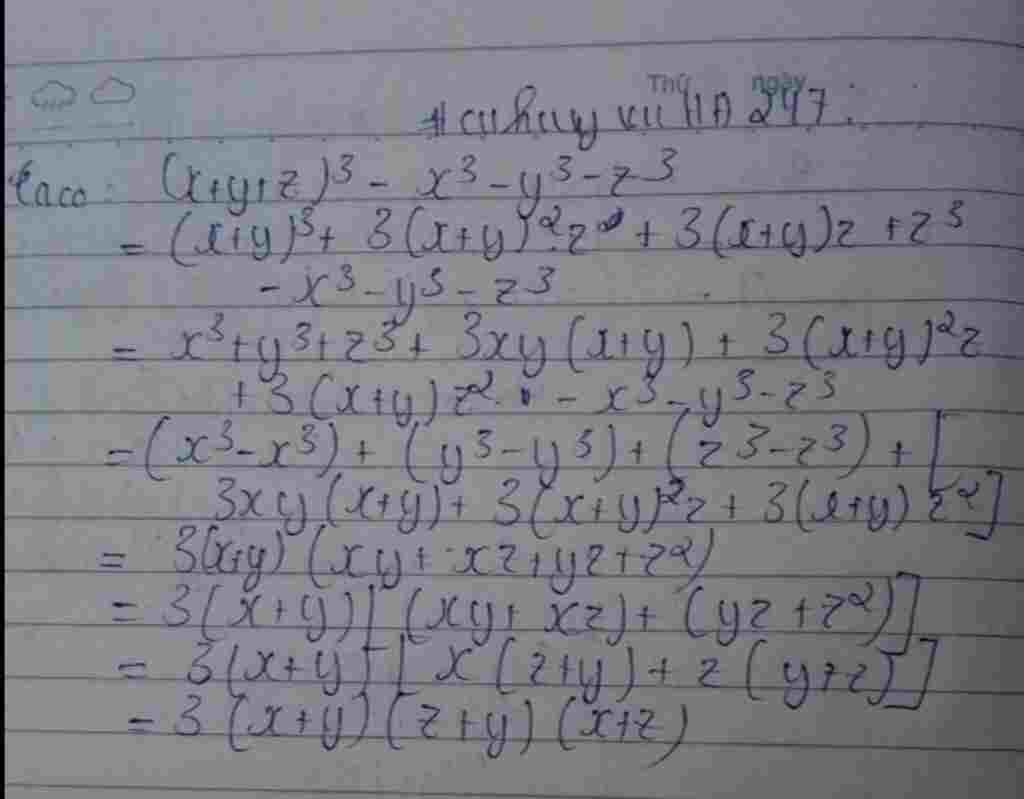 Thứ ngày
11A 247.
(x+y+z)³ - x³ - y³ - z³
= (x+y)³ + 3(x+y)².z + 3(x+y)z + z³
- x³ - y³ - z³
= x³ + y³ + z³ + 3xy(x+y) + 3(x+y)²z
+ 3(x+y)z² - x³ - y³ - z³
= (x³ - x³) + (y³ - y³) + (z³ - z³) + [
3xy(x+y) + 3(x+y)²z + 3(x+y)z²]
= 3(x+y)(xy + xz + yz + z²)
= 3(x+y)[(xy + xz) + (yz + z²)]
= 3(x+y)[x(z+y) + z(y+z)]
= 3(x+y)(z+y)(x+z)